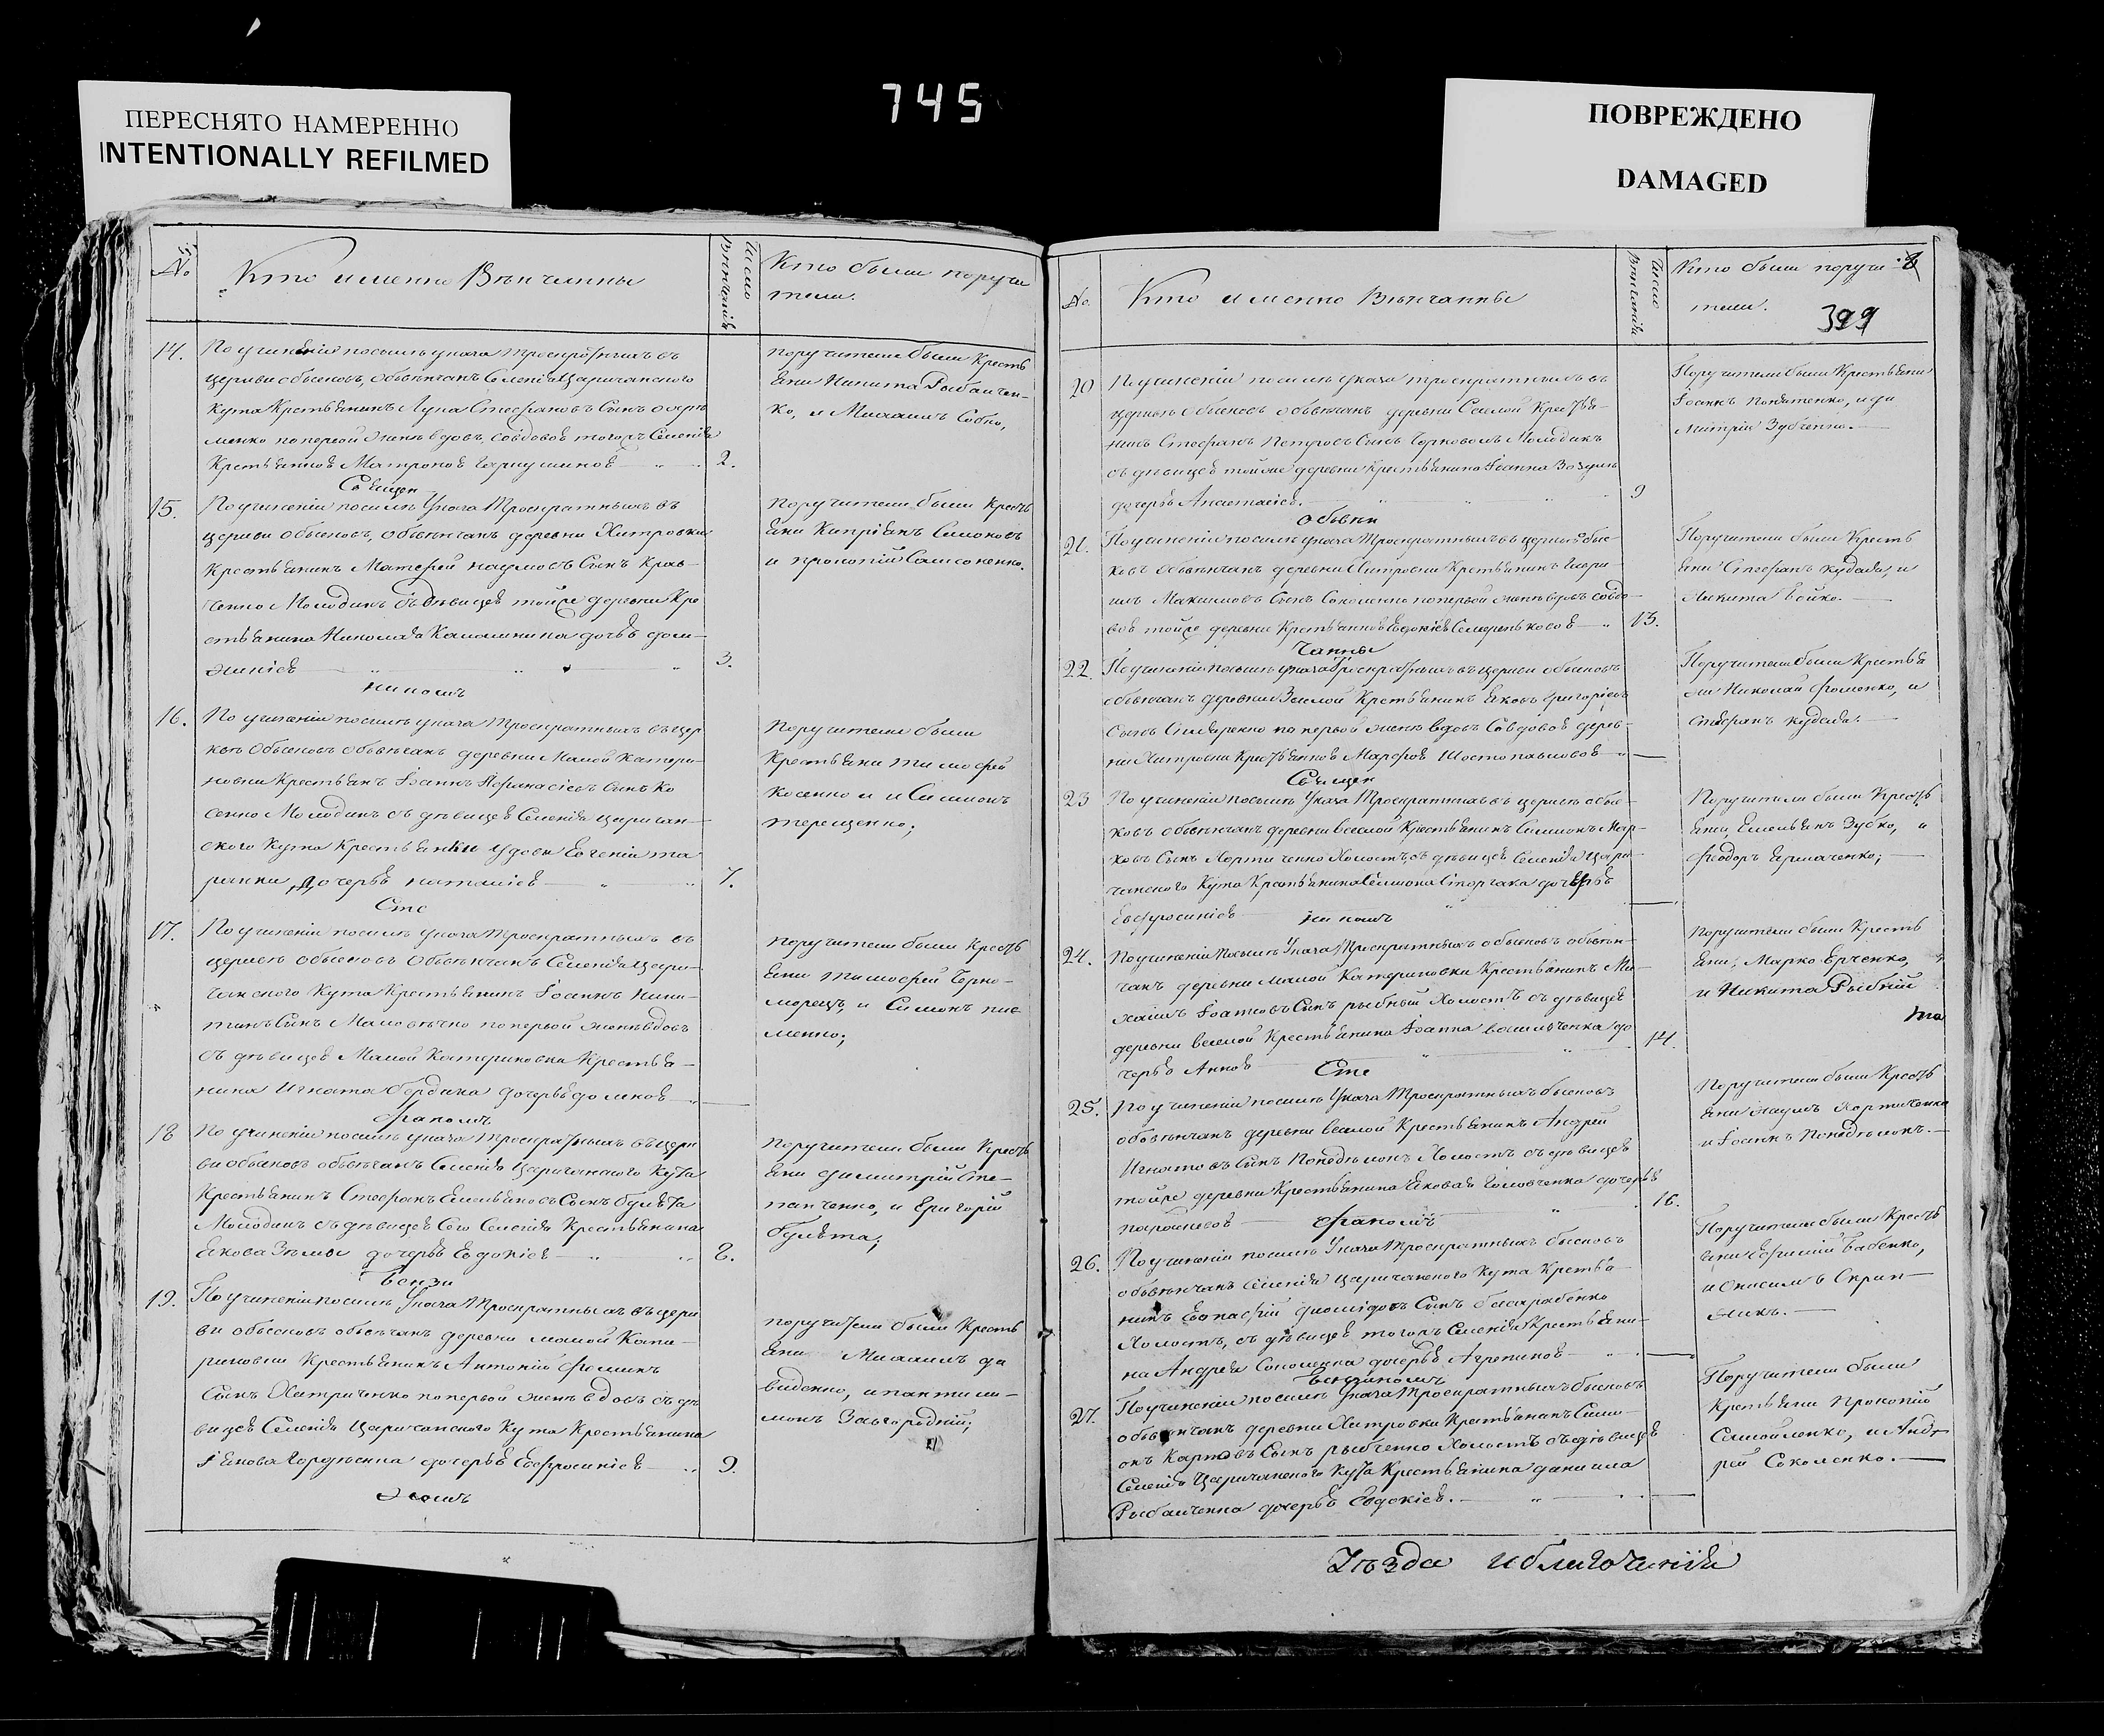 745
ПЕРЕСНЯТО НАМЕРЕННО
INTENTIONALLY REFILMED
ПОВРЕЖДЕНО
DAMAGED
№
Кто именно Вѣнчанны
Число Вѣнчанія
Кто были поручи
тели.
14.
По учиненіи посилъ указа троекратныхъ въ
церкви обысковъ, обвѣнчанъ Селенія Царичанского
Кута Крестьянинъ Лука Стефановъ Сынъ
менко по первой женѣ вдовъ, совдовою тогожъ Селенія
Крестьянкою Матроною 2.
поручители были Кресть
яни Никита Рыбалчен-
ко, и Михаилъ Собко,
Священ
15.
По учиненіи посилѣ Указа Троекратныхъ въ
церкви обысковъ, обвѣнчанъ деревни Хитровки
Крестьянинъ Матфей наумовъ Сынъ Крав-
ченко Молодикъ съ дѣвицею тойже деревни Кре
стьянина Николая Калашника дочерью доми-
никіею 3.
поручители были Кресть
яни Кипріанъ Симоновъ
и прокопій Самсоненко.
никомъ
16.
По учиненіи посилѣ указа троекратныхъ въ цер
квѣ Обысковъ обвѣнчанъ деревни Малой Катери-
новки Крестьянъ Іоаннъ Афанасіевъ Сынъ Ко
сенко Молодикъ съ дѣвицею Селенія царичан-
ского Кута Крестьянки Удови Евгеніи та
ранки, дочерью наталіею 7.
Поручители были
Крестьяни тимофей
Косенко и Симионъ
терещенко;
Сте
17.
По учиненіи посилѣ указа троекратныхъ въ
церквѣ обысковъ Обвѣнчанъ Селенія Цари-
чанского Кута Крестьянинъ Іоаннъ Ники-
тинъ Сынъ Маловѣчко по первой женѣ вдовъ
съ дѣвицею Малой Катериновки Крестья-
нина Игната бердика дочерью домною
поручители были Кресть
яни тимофей Черно-
морецъ, и Симонъ пис
менко;
фаномъ
18
По учиненіи посилъ указа троекратныхъ въ церк
ви обысковъ обвѣнчанъ Селенія Царичанского Кута
Крестьянинъ Стефанъ Емельяновъ Сынъ булвта
Молодикъ съ дѣвицею Сего Селенія Крестьянина
Якова Зѣмы дочерью Евдокіею 8.
поручители были Кресть
яни димитрій Сте-
панченко, и Григорій
булвта;
19.
По учиненіи посилъ Указа троекратныхъ въ церк
ви обысковъ обвѣнчанъ деревни малой Кате-
риновки Крестьянинъ Антоній Фоминъ
Сынъ Дмитриченко по первой женѣ вдовъ съ дѣ
вицею Селенія Царичанского Кута Крестьянина
Якова Гордѣенка дочерью Евфросиніею 9.
поручители были Кресть
яни Михаилъ да
виденко, и пантили-
монъ Загородній;
№
Кто именно Вѣнчанны
Число Вѣнчанія
Кто были поручи-
тели.
399
20
По учиненіи посилѣ указа троекратныхъ въ
церквѣ обысковъ обвѣнчанъ деревни Веселой Крестья-
нинъ Стефанъ Петровъ Сынъ Молодикъ
съ дѣвицею тойже деревни Крестьянина Іоанна
дочерью Анастасіею. 9
Поручители были Крестьяни
Іоаннъ и ди
митрій Зубченко.
обвѣн
21.
По учиненіи посилъ указа троекратныхъ въ церквѣ обыс-
ковъ обвѣнчанъ деревни Хитровки Крестьянинъ Гаври-
илъ Максимовъ Сынъ Соколенко по первой женѣ вдовъ совдо-
вою тойже деревни Крестьянкою Евдокіею 13.
Поручители были Кресть
яни Стефанъ кудала, и
Никита бойко.
чанны
22.
По учиненіи посилъ указа Троекратныхъ въ церкви обысковъ
обвѣнчанъ деревни Веселой Крестьянинъ Яковъ Григоріевъ
Сынъ Сидоренко по первой женѣ вдовъ Совдовою дерев-
ни Хитровки Крестьянкою Марфою Шостопаловою
Поручители были Крестья
ни Николай Фоменко, и
стефанъ кудала.
Священ
23
По учиненіи посилъ Указа Троекратныхъ въ церквѣ обыс-
ковъ обвѣнчанъ деревни веселой Крестьянинъ Симионъ Мар-
ковъ Сынъ Хортиченко Холостъ, съ дѣвицею Селенія Цари-
чанского Кута Крестьянина Симиона Сторчака дочерью
Евфросиніею
Поручители были Кресть
яни, Емельянъ Зубко, и
Феодоръ Ермаченко;
никомъ
24.
По учиненіи Посилъ Указа Троекратныхъ обысковъ обвѣн-
чанъ деревни малой Катериновки Крестьянинъ Ми-
хаилъ Іоановъ Сынъ рыбній Холостъ съ дѣвицею
деревни веселой Крестьянина Іоанна васильченка до
черью Анною 14.
поручители были Кресть
яни, Марко Ерченко,
и Никита Рыбній
Сте
25.
По учиненіи посилъ Указа Троекратныхъ обысковъ
обвѣнчанъ деревни веселой Крестьянинъ Андрей
Игнатовъ Сынъ Понедѣлокъ Холостъ съ дѣвицею
тойже деревни Крестьянина Якова Головченка дочерью
параскевою 16.
Поручители были Кресть
яни наумъ Хортиченко
и Іоаннъ Понедѣлокъ.
фаномъ
26.
По учиненіи посилъ Указа Троекратныхъ обысковъ
обвѣнчанъ селенія царичанского Кута Крестья-
нинъ Евстафій диомидовъ Сынъ басарабенко
Холостъ, съ дѣвицею тогожъ Селенія Крестьяни-
на Андрея Соколенка дочерью Агрепиною
Поручители были Кресть
яни Ефимій бабенко,
и Онисимъ Скрип-
никъ.
27.
По учиненіи посилъ Указа Троекратныхъ обысковъ
обвѣнчанъ деревни Хитровки Крестьянинъ Сими-
онъ Карповъ Сынъ рыбченко Холостъ съ дѣвицею
Селенія Царичанского Кута Крестьянина даниила
Рыбалченка дочерью Евдокіею.
Поручители были
Крестьяни прокопій
Самойленко, и Анд-
рей Соколенко.
Уѣзда и благочинія